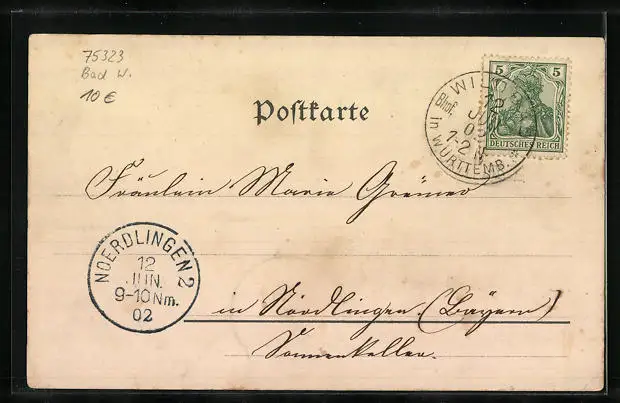 75323
Bad W.
10 €
Postkarte
5 5
DEUTSCHES REICH
WILDBAD
Bhf.
12
JUN
02
1-2 N
in WÜRTTEMB.
Fräulein Marie Greiner
NOERDLINGEN 2
12
JUN.
9-10 Nm.
02
in Nördlingen (Bayern)
Sonnenkeller.